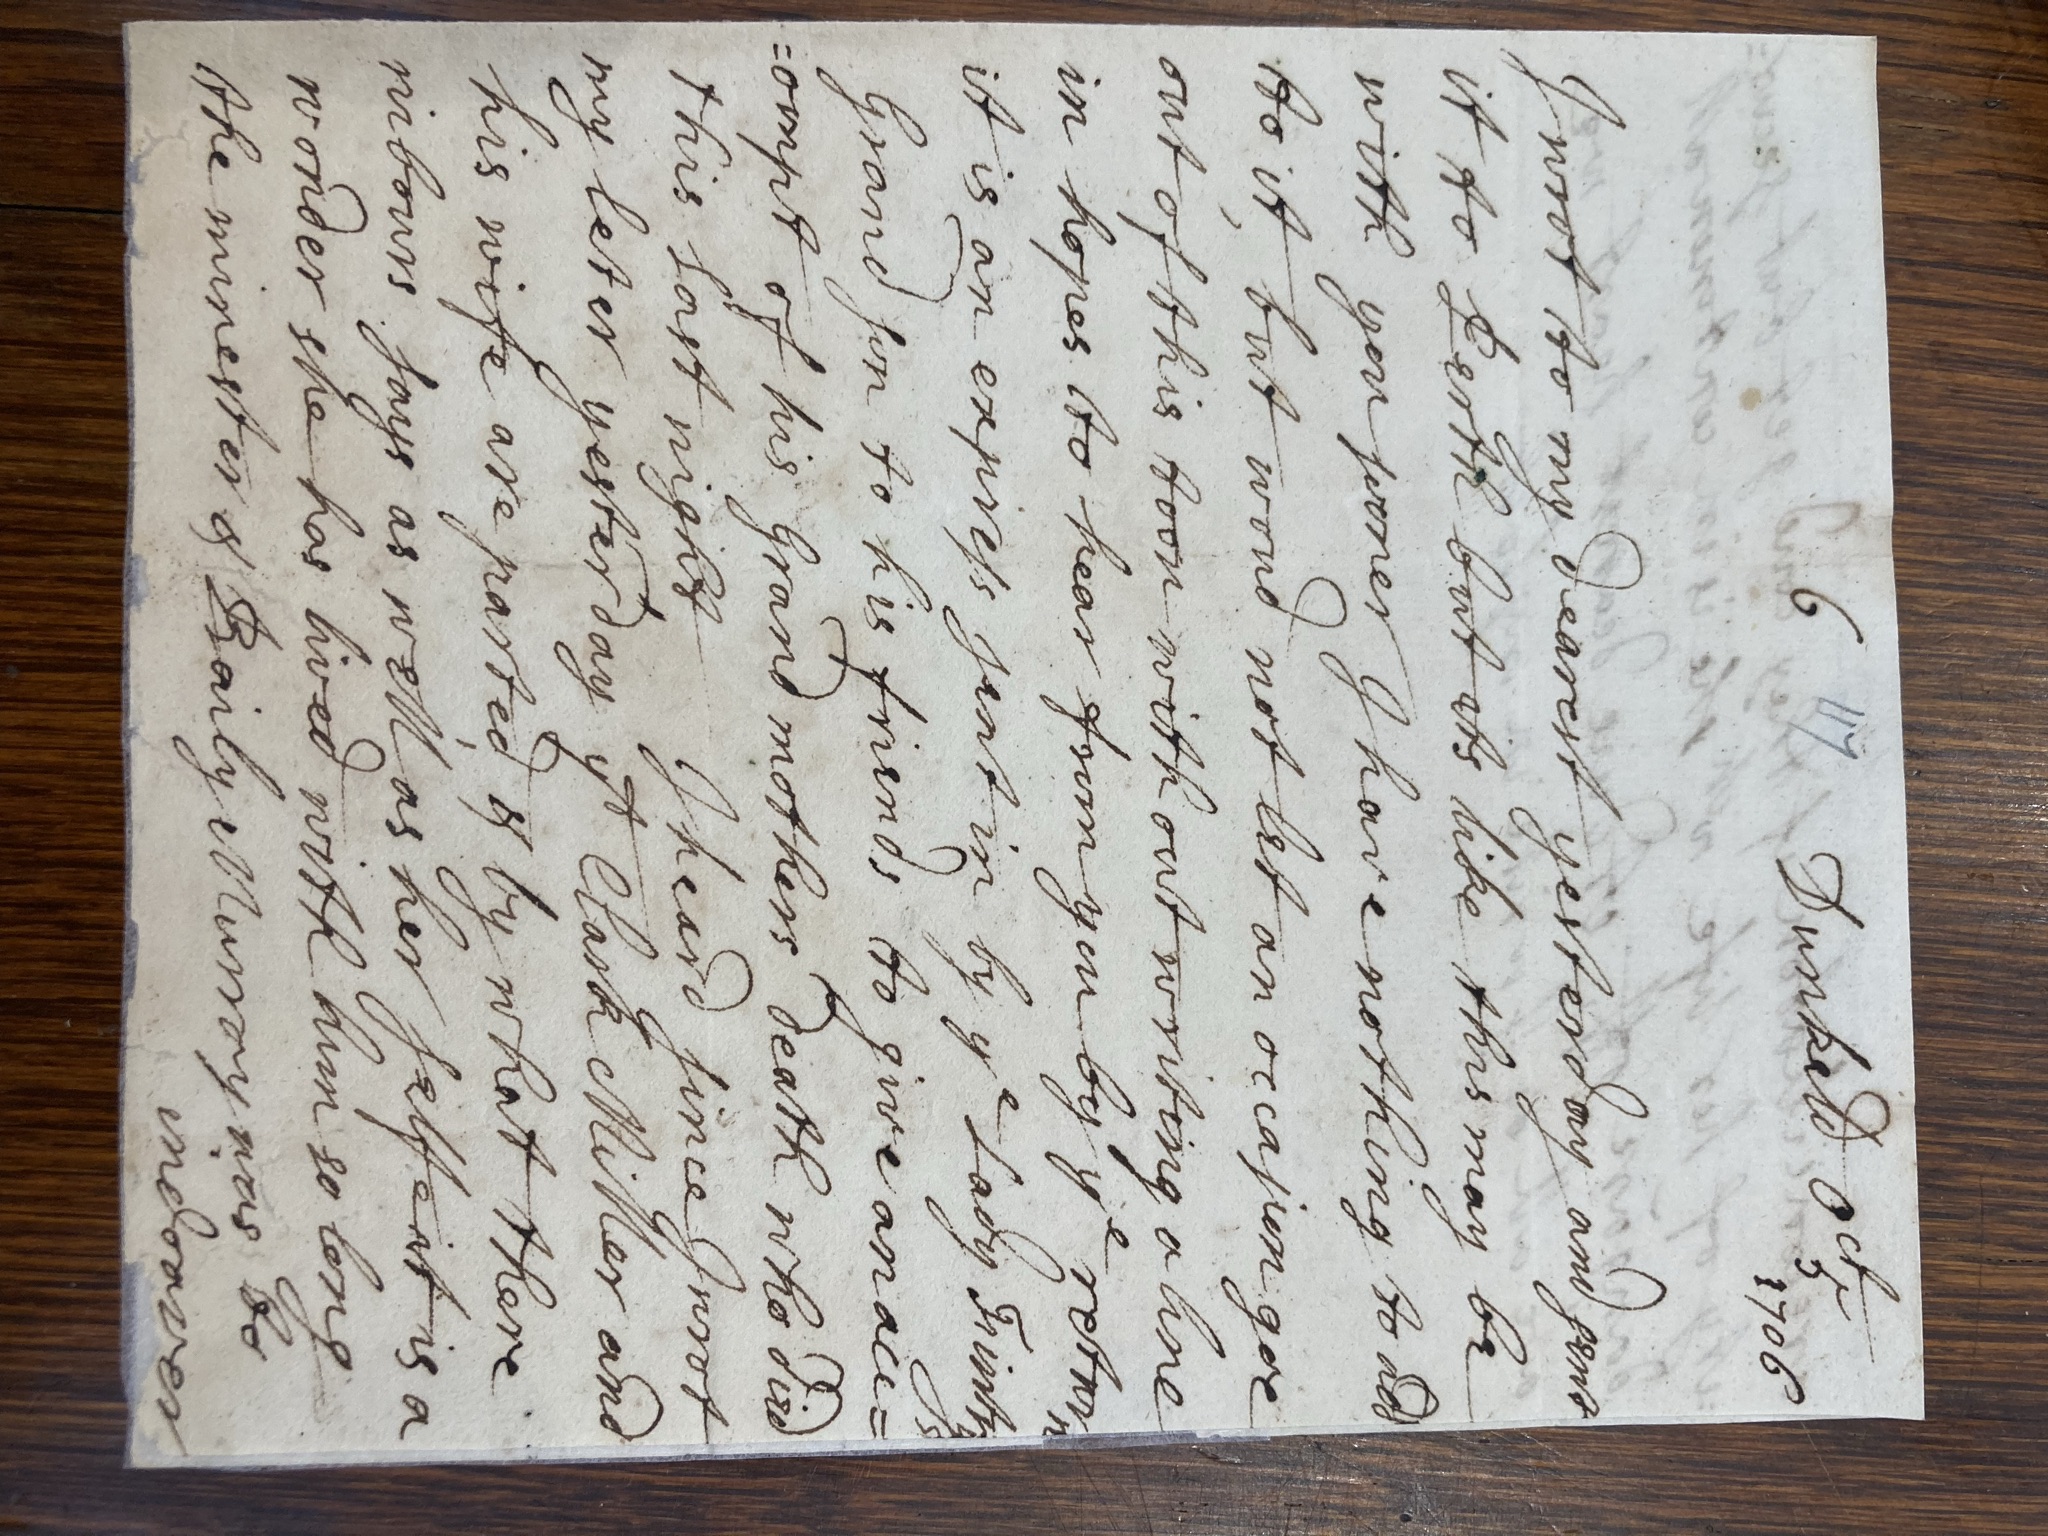 6 117 Dunkeld Oct 5
1706
I wrot to my dearest yesterday and sent
it to Perth but its like this may be
with you sooner I have nothing to add
to it, but woud not let an occasion goe
out of this toon without writing a line
in hopes to hear from you by ye return
it is an express sent in by ye Lady Fintrys
Grand son to his friends to give an acc=
=ompt of his Grand mothers death who died
this last night, I heard since I wrot
my leter yesterday yt Clark Miller and
his wife are parted, & by what there
nibours says as well as her selfe it is a
wonder she has lived with him so long
the minester & Baily Murray was to
indeaver